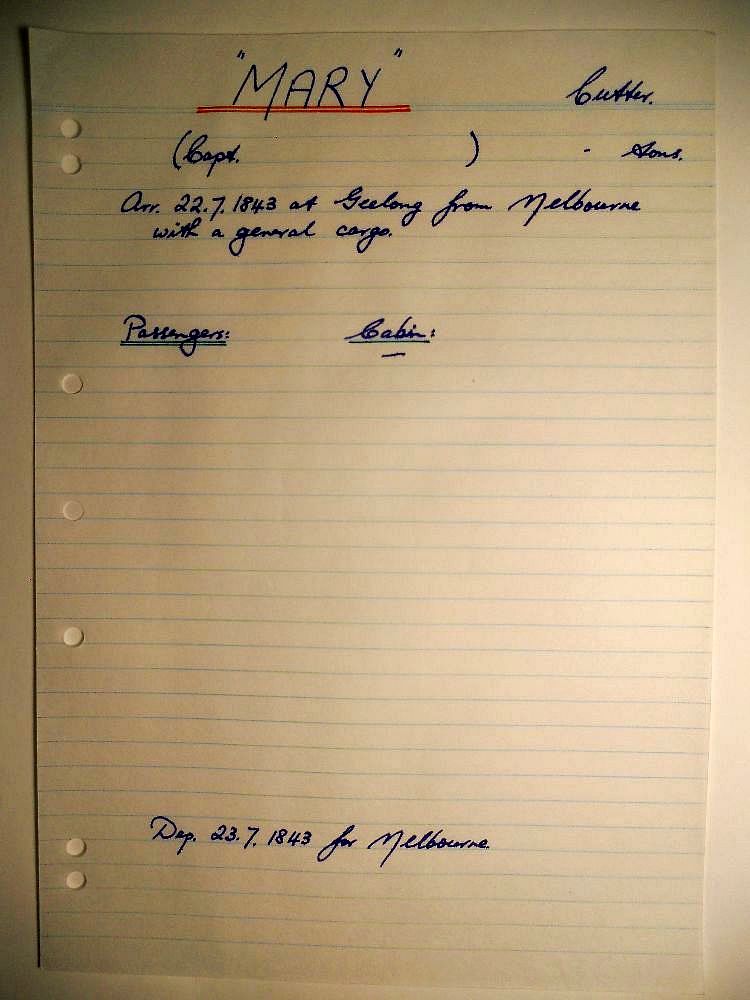 "MARY" Cutter.
(Capt. ) - Tons.
Arr. 22.7.1843 at Geelong from Melbourne
with a general cargo.
Passengers: Cabin:
—
Dep. 23.7.1843 for Melbourne.